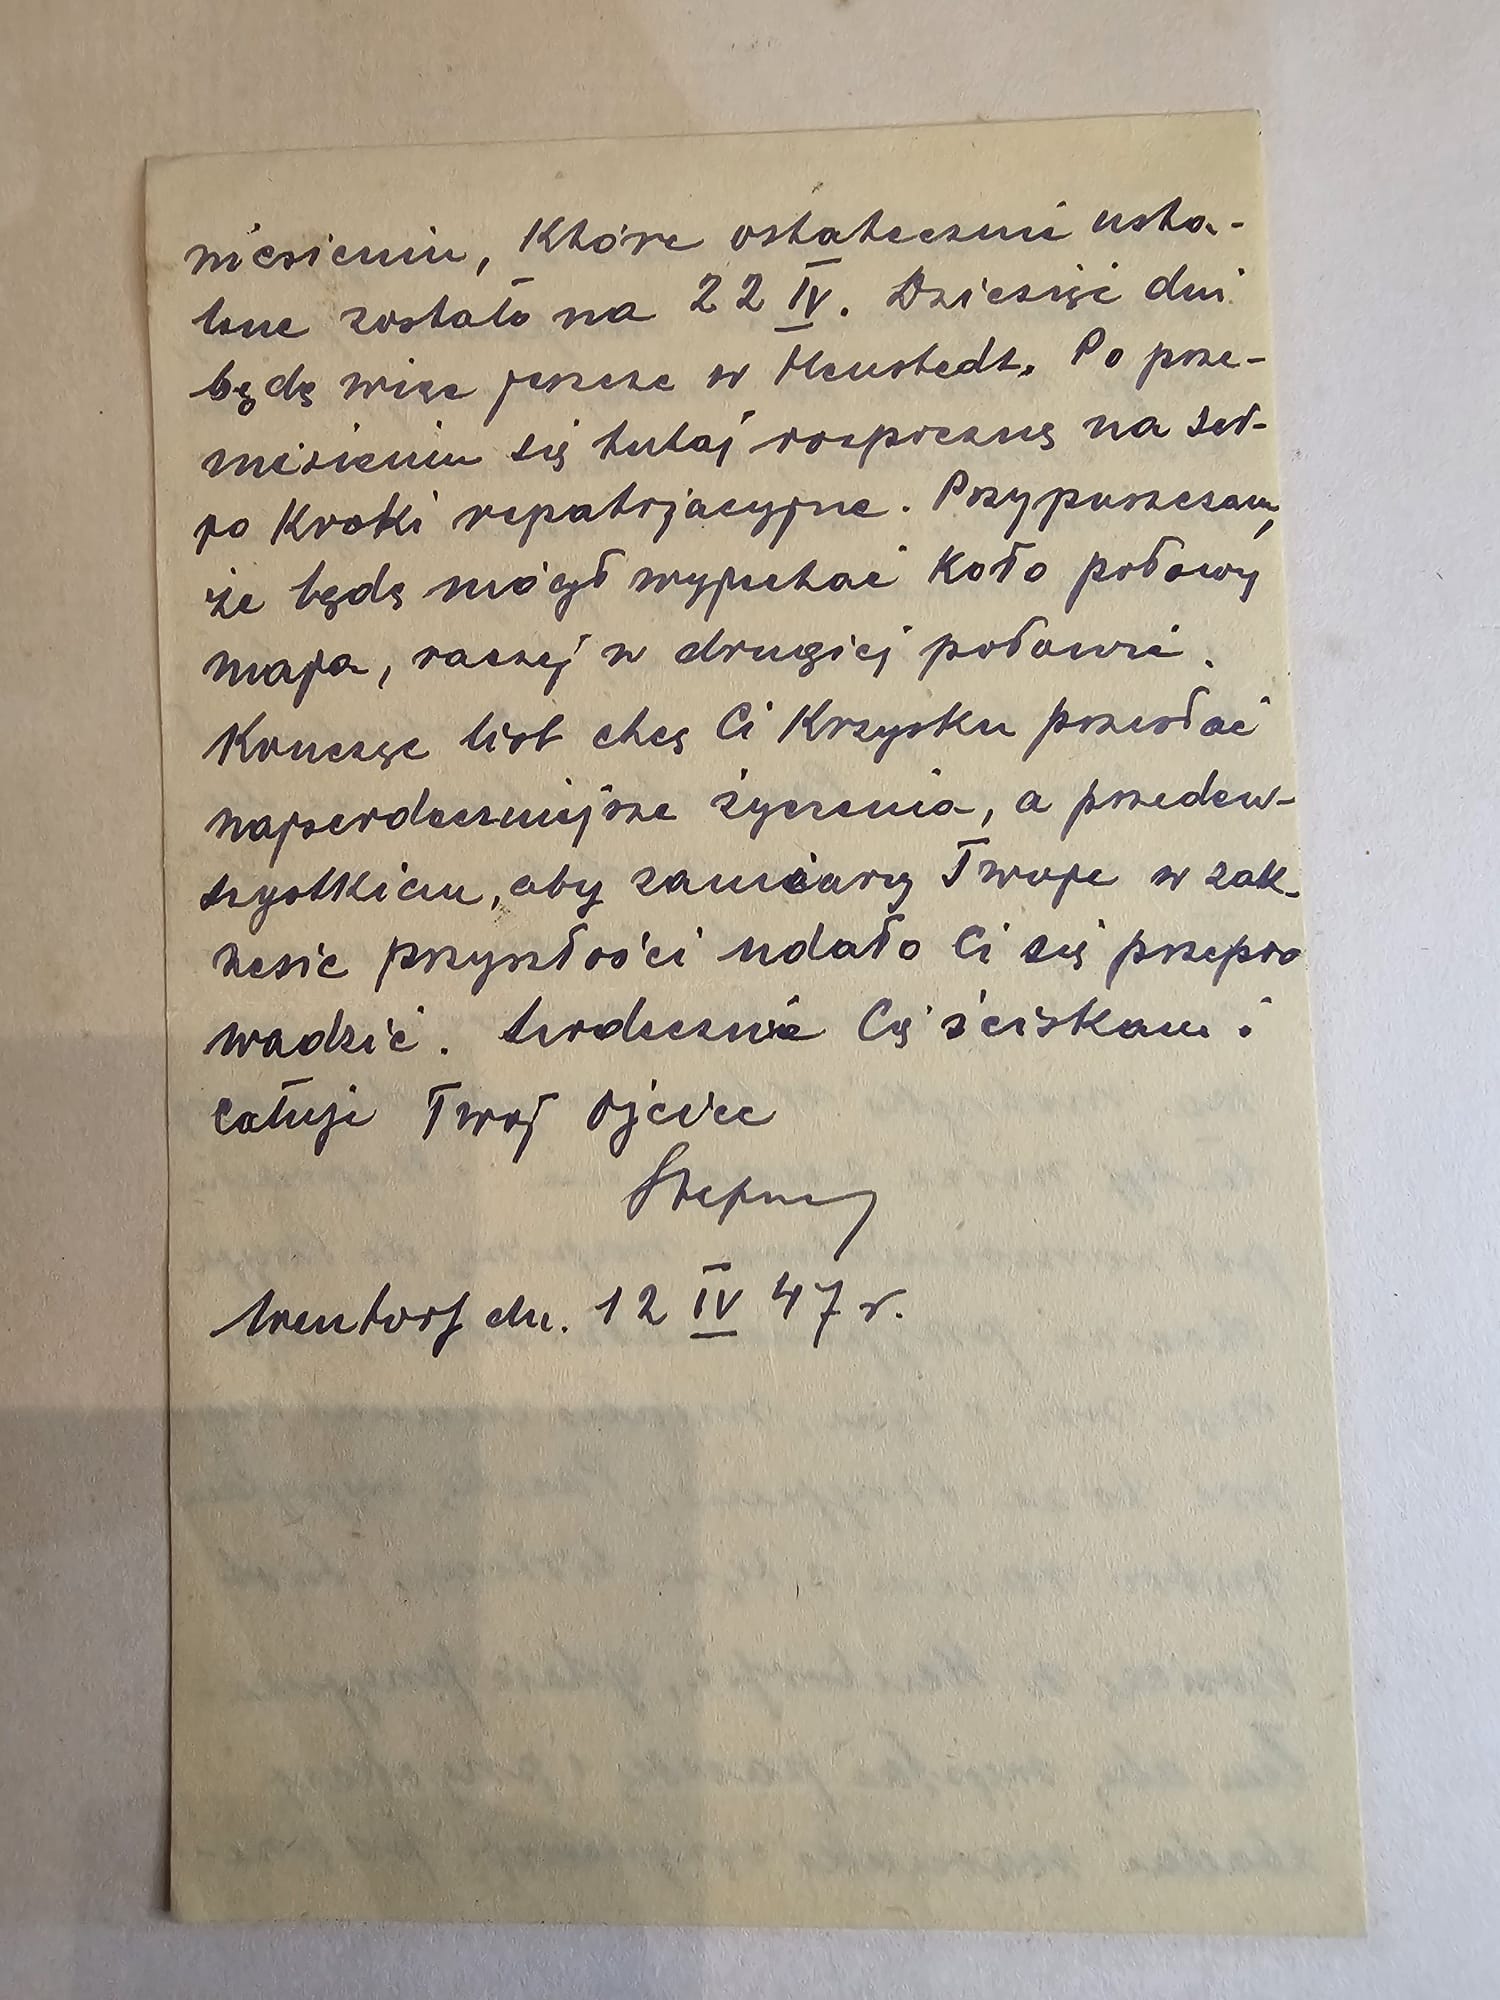 niesieniu, które ostatecznie usta-
lone zostało na 22 IV. Dziesięć dni
będę więc jeszcze w Neustedt. Po prze-
niesieniu się tutaj rozpocznę na ser-
jo kroki repatrjacyjne. Przypuszczam,
że będę mógł wyjechać koło połowy
maja, raczej w drugiej połowie.
Kończąc list chcę Ci Krzysku przesłać
najserdeczniejsze życzenia, a przedew-
szystkiem, aby zamiary Twoje w zak-
resie przyszłości udało Ci się przepro
wadzić. Serdecznie Cię ściskam i
całuję Twój Ojciec
dn. 12 IV 47 r.